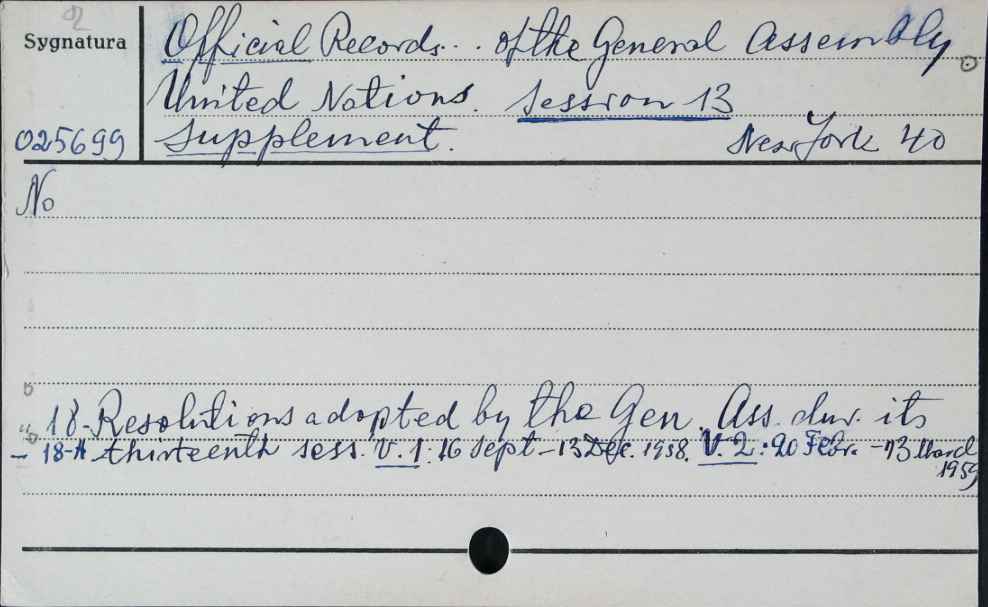 Sygnatura
Official Records... of the General Assembly
United Nations. Session 13
025699 Supplement. New York 40
No
18-Resolutions adopted by the Gen. Ass. dur. its
- 18-A thirteenth sess. V. 1: 16 Sept - 13 Dec. 1958. V. 2: 20 Febr. - 13 March
1959